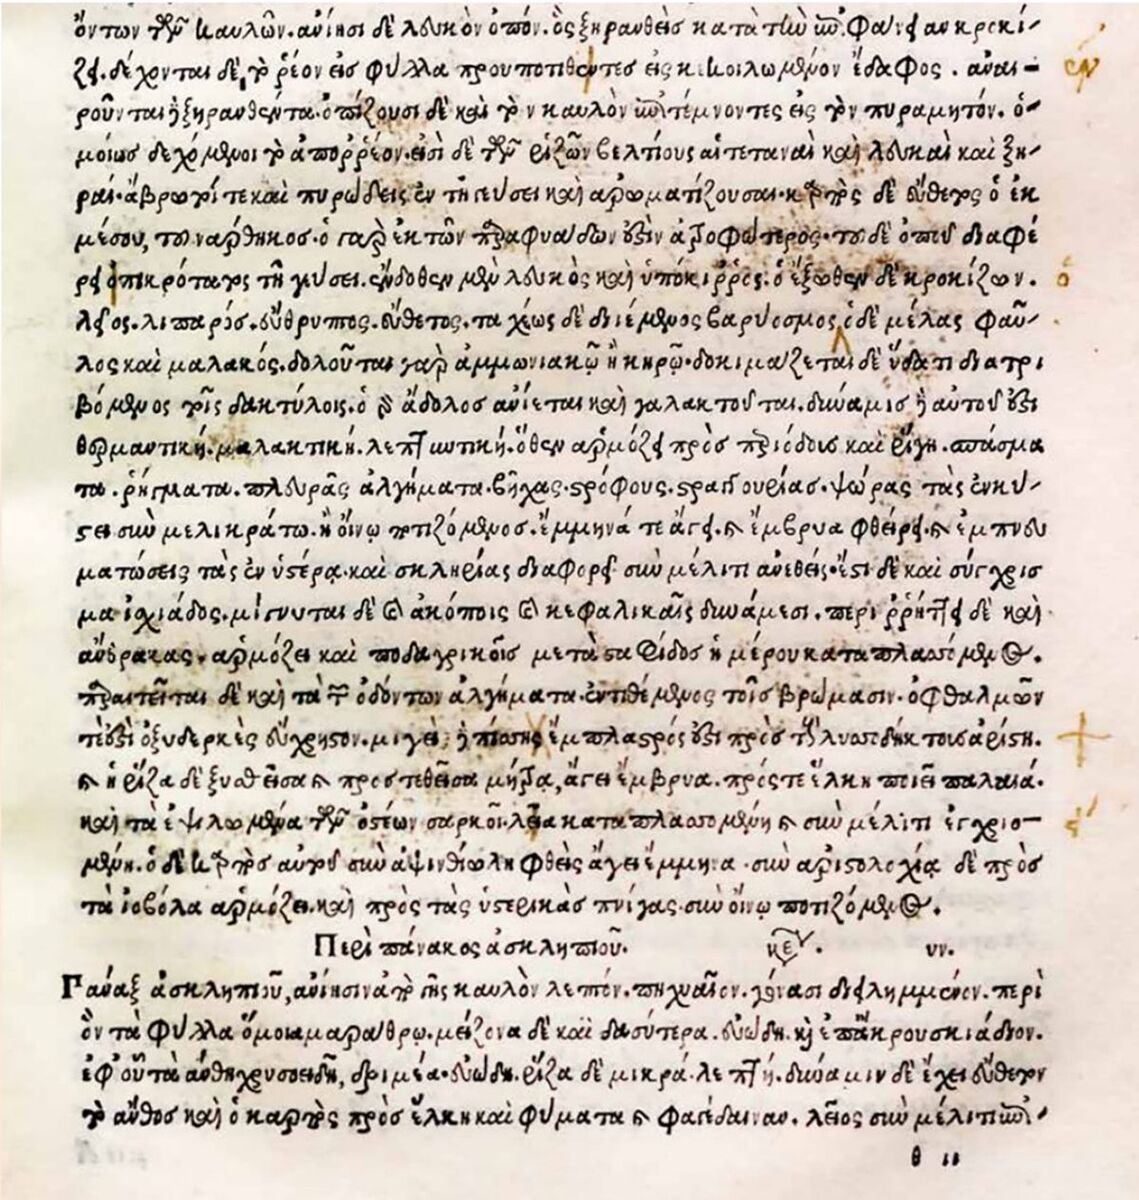 ὄντων τῶν καυλῶν. ἀνίησι δὲ λευκὸν ὀπόν. ὃς ξηρανθεὶς κατὰ τὴν ἐπιφάνειαν κροκί-
ζει. δέχονται δὲ, τὸ ῥέον εἰς φύλλα προυποτιθέντες εἰς κεκοιλωμένον ἔδαφος. ἀναι-
ροῦνται ἢ ξηρανθέντα. ὀπίζουσι δὲ καὶ τὸν καυλὸν ἐπιτέμνοντες εἰς τὸν πυραμητόν. ὁ-
μοίως δεχόμενοι τὸ ἀπορρέον. εἰσὶ δὲ τῶν ῥιζῶν βελτίους αἱ τεταναὶ καὶ λευκαὶ καὶ ξη-
ραί. ἄβρωτοί τε καὶ πυρώδεις ἐν τῇ γεύσει καὶ ἀρωματίζουσαι. καρπὸς δὲ εὔθετος ὁ ἐκ
μέσου, τοῦ νάρθηκος. ὁ γὰρ ἐκ τῶν παραφυάδων ἐστὶν ἀτροφώτερος. τοῦ δὲ ὀποῦ διαφέ
ρει ὁ πικρότατος τῇ γεύσει. ἔνδοθεν μὲν λευκὸς καὶ ὑπόκιρρος. ὁ ἔξωθεν δὲ κροκίζων.
λεῖος. λιπαρός. εὔθρυπτος. εὔθετος. ταχέως δὲ διέμενος βαρύοσμος ὁ δὲ μέλας φαῦ
λος καὶ μαλακός. δολοῦται γὰρ ἀμμωνιακῷ ἢ κηρῷ. δοκιμάζεται δὲ ὕδατι διατρι
βόμενος τοῖς δακτύλοις. ὁ γὰρ ἄδολος ἀνίεται καὶ γαλακτοῦται. δύναμις ἢ αὐτοῦ ἐστὶ
θερμαντική. μαλακτική. λεπτυντική. ὅθεν ἁρμόζει πρὸς περιόδους καὶ ῥίγη. σπάσμα
τα. ῥήγματα. πλευρᾶς ἀλγήματα. βῆχας. στρόφους. στραγγουρίας. ψώρας τὰς ἐν κύ-
στει σὺν μελικράτω. ἢ οἴνῳ ποτιζόμενος. ἔμμηνά τε ἄγει. καὶ ἔμβρυα φθείρει. καὶ ἐμπνευ
ματώσεις τὰς ἐν ὑστέρᾳ. καὶ σκληρίας διαφορεῖ σὺν μέλιτι ἀνεθείς. ἔστι δὲ καὶ σύγχρισ
μα ἰσχιάδος. μίγνυται δὲ καὶ ἀκόποις καὶ κεφαλικαῖς δυνάμεσι. περιρρήττει δὲ καὶ
ἄνθρακας. ἁρμόζει καὶ ποδαγρικοῖς μετὰ σταφίδος ἡμέρου καταπλασσόμενος.
πραΰτεῖται δὲ καὶ τὰ τῶν ὀδόντων ἀλγήματα ἐντιθέμενος τοῖς βρώμασιν. ὀφθαλμῶν
τέ ἐστι ὀξυδερκὲς εὔχρηστον. μιγεὶς ἢ πίσσῃ ἔμπλαστρός ἐστι πρὸς τοὺς λυσσοδήκτους ἀρίστη.
καὶ ἡ ῥίζα δὲ ξυσθεῖσα καὶ προστεθεῖσα μήτρᾳ, ἄγει ἔμβρυα. πρός τε ἕλκη ποιεῖ παλαιά.
καὶ τὰ ἐψιλωμένα τῶν ὀστέων σαρκοῖ. λεία καταπλασσομένη καὶ σὺν μέλιτι ἐγχριο-
μένη. ὁ δὲ καρπὸς αὐτοῦ σὺν ἀψινθίω ληφθεὶς ἄγει ἔμμηνα. σὺν ἀριστολοχίᾳ δὲ πρὸς
τὰ ἰοβόλα ἁρμόζει. καὶ πρὸς τὰς ὑστερικὰς πνίγας. σὺν οἴνῳ ποτιζόμενος.
Περὶ πάνακος ἀσκληπιοῦ. κεφ. νν.
Πάναξ ἀσκληπιοῦ, ἀνίησιν ἀπὸ γῆς καυλὸν λεπτόν. πηχυαῖον. γόνασι διειλημμένον. περὶ
ὃν τὰ φύλλα ὅμοια μαράθρῳ. μείζονα δὲ καὶ δασύτερα. εὐώδη. καὶ ἐπ' ἄκρου σκιάδιον.
ἐφ' οὗ τὰ ἄνθη χρυσοειδῆ, δριμέα. εὐώδη. ῥίζα δὲ μικρά. λεπτή. δύναμιν δὲ ἔχει εὔθετον
τὸ ἄνθος καὶ ὁ καρπὸς πρὸς ἕλκη καὶ φύματα καὶ φαγέδαιναν. λεῖος σὺν μέλιτι ἐπι-
θ ιι